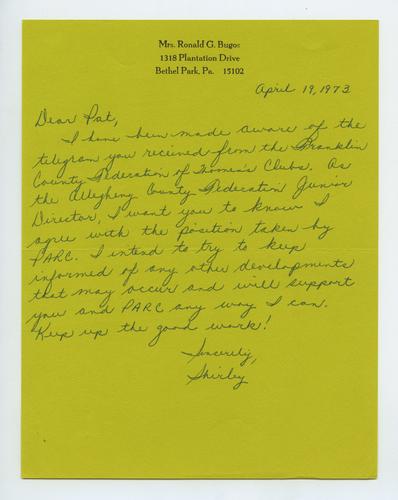 Mrs. Ronald G. Bugos
1318 Plantation Drive
Bethel Park, Pa. 15102
April 19, 1973
Dear Pat,
I have been made aware of the
telegram you received from the Franklin
County Federation of Women's Clubs. As
the Allegheny County Federation Junior
Director, I want you to know I
agree with the position taken by
PARC. I intend to try to keep
informed of any other developments
that may occur and will support
you and PARC any way I can.
Keep up the good work!
Sincerely,
Shirley